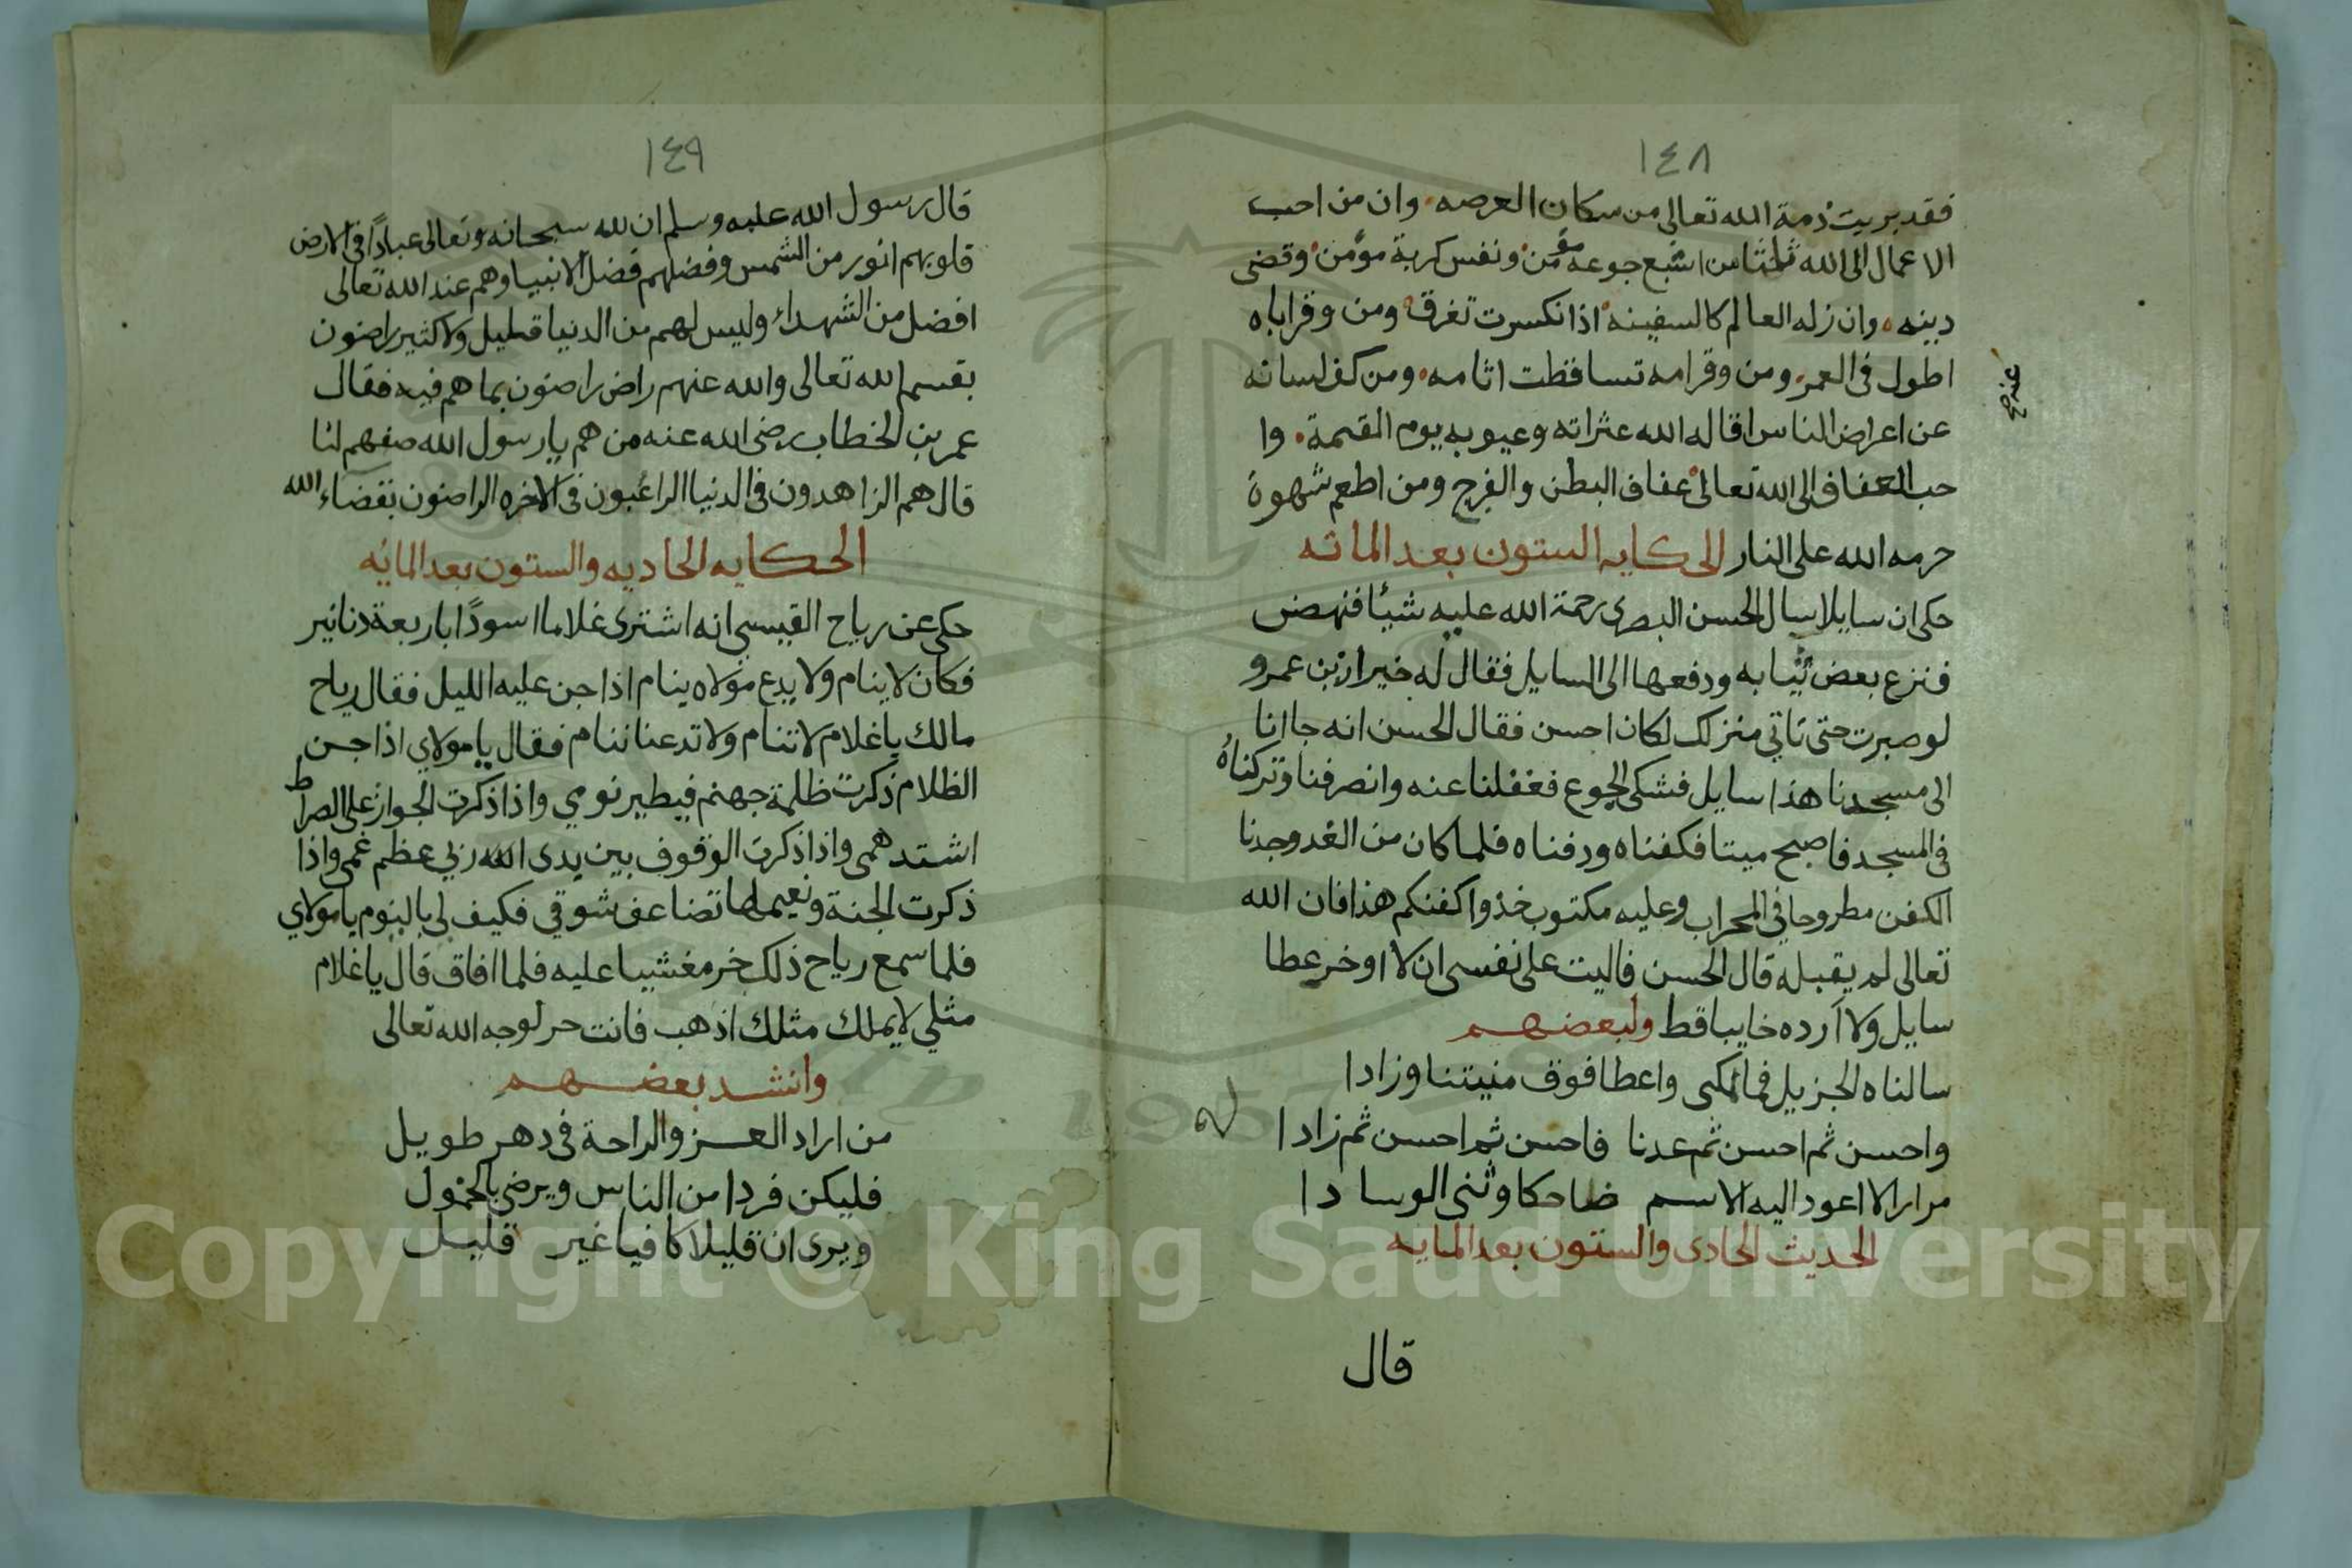 ١٤٨
فقد بريت ذمة الله تعالى من سكان العرصه وان من احب
الاعمال الى الله ثلثا من اشبع جوعة مؤمن ونفس كربة مؤمن وقضى
دينه وان زله العالم كالسفينه اذا نكسرت تغرق ومن وقر اباه
اطول فى العمر ومن وقر امه تساقطت اثامه ومن كف لسانه
عن اعراض الناس اقاله الله عثراته وعيوبه يوم القيمة وا
حب العفاف الى الله تعالى عفاف البطن والفرج ومن اطعم شهوة
حرمه الله على النار الحكايه الستون بعد المائه
حكى ان سايلا سال الحسن البصرى رحمة الله عليه شيئا فنهض
فنزع بعض ثيابه ودفعها الى السايل فقال له خيرار بن عمرو
لو صبرت حتى تاتي منزلك لكان احسن فقال الحسن انه جاانا
الى مسجدنا هذا سايل فشكى الجوع فغفلنا عنه وانصرفنا وتركناه
فى المسجد فاصبح ميتا فكفناه ودفناه فلما كان من الغد وجدنا
الكفن مطروحا في المحراب وعليه مكتوب خذوا كفنكم هذا فان الله
تعالى لم يقبله قال الحسن فاليت على نفسى ان لا اوخر عطا
سايل ولا ارده خايبا قط ولبعضهم
سالناه الجزيل فما تلكى واعطا فوق منيتنا وزادا
واحسن ثم احسن ثم عدنا فاحسن ثم احسن ثم زادا
مرارا لا اعود اليه الاسم ضاحكا وثنى الوسادا
الحديث الحادى والستون بعد المايه
قال
١٤٩
قال رسول الله عليه وسلم ان لله سبحانه وتعالى عبادًا فى الارض
قلوبهم انور من الشمس وفضلهم فضل الانبيا وهم عند الله تعالى
افضل من الشهداء وليس لهم من الدنيا قليل ولا كثير راضون
بقسم الله تعالى والله عنهم راض راضون بما هم فيه فقال
عمر بن الخطاب رضى الله عنه من هم يا رسول الله صفهم لنا
قال هم الزاهدون فى الدنيا الراغبون فى الاخره الراضون بقضاء الله
الحكايه الحاديه والستون بعد المائه
حكى عن رياح القيسي انه اشترى غلاما اسودًا باربعة دنانير
فكان لا ينام ولا يدع مولاه ينام اذا جن عليه الليل فقال رياح
مالك يا غلام لا تنام ولا تدعنا ننام فقال يا مولاي اذا جن
الظلام ذكرت ظلمة جهنم فيطير نومي واذا ذكرت الجواز على الصراط
اشتد همى واذا ذكرت الوقوف بين يدى الله ربي عظم غمى واذا
ذكرت الجنة ونعيمها تضاعف شوقي فكيف لي بالنوم يا مولاي
فلما سمع رياح ذلك خر مغشيا عليه فلما افاق قال يا غلام
مثلي لا يملك مثلك اذهب فانت حر لوجه الله تعالى
وانشد بعضهم
من اراد العز والراحة فى دهر طويل
فليكن فردا من الناس ويرضى بالخمول
ويرى ان قليلا كافيا غير قليل
Copyright © King Saud University
1957